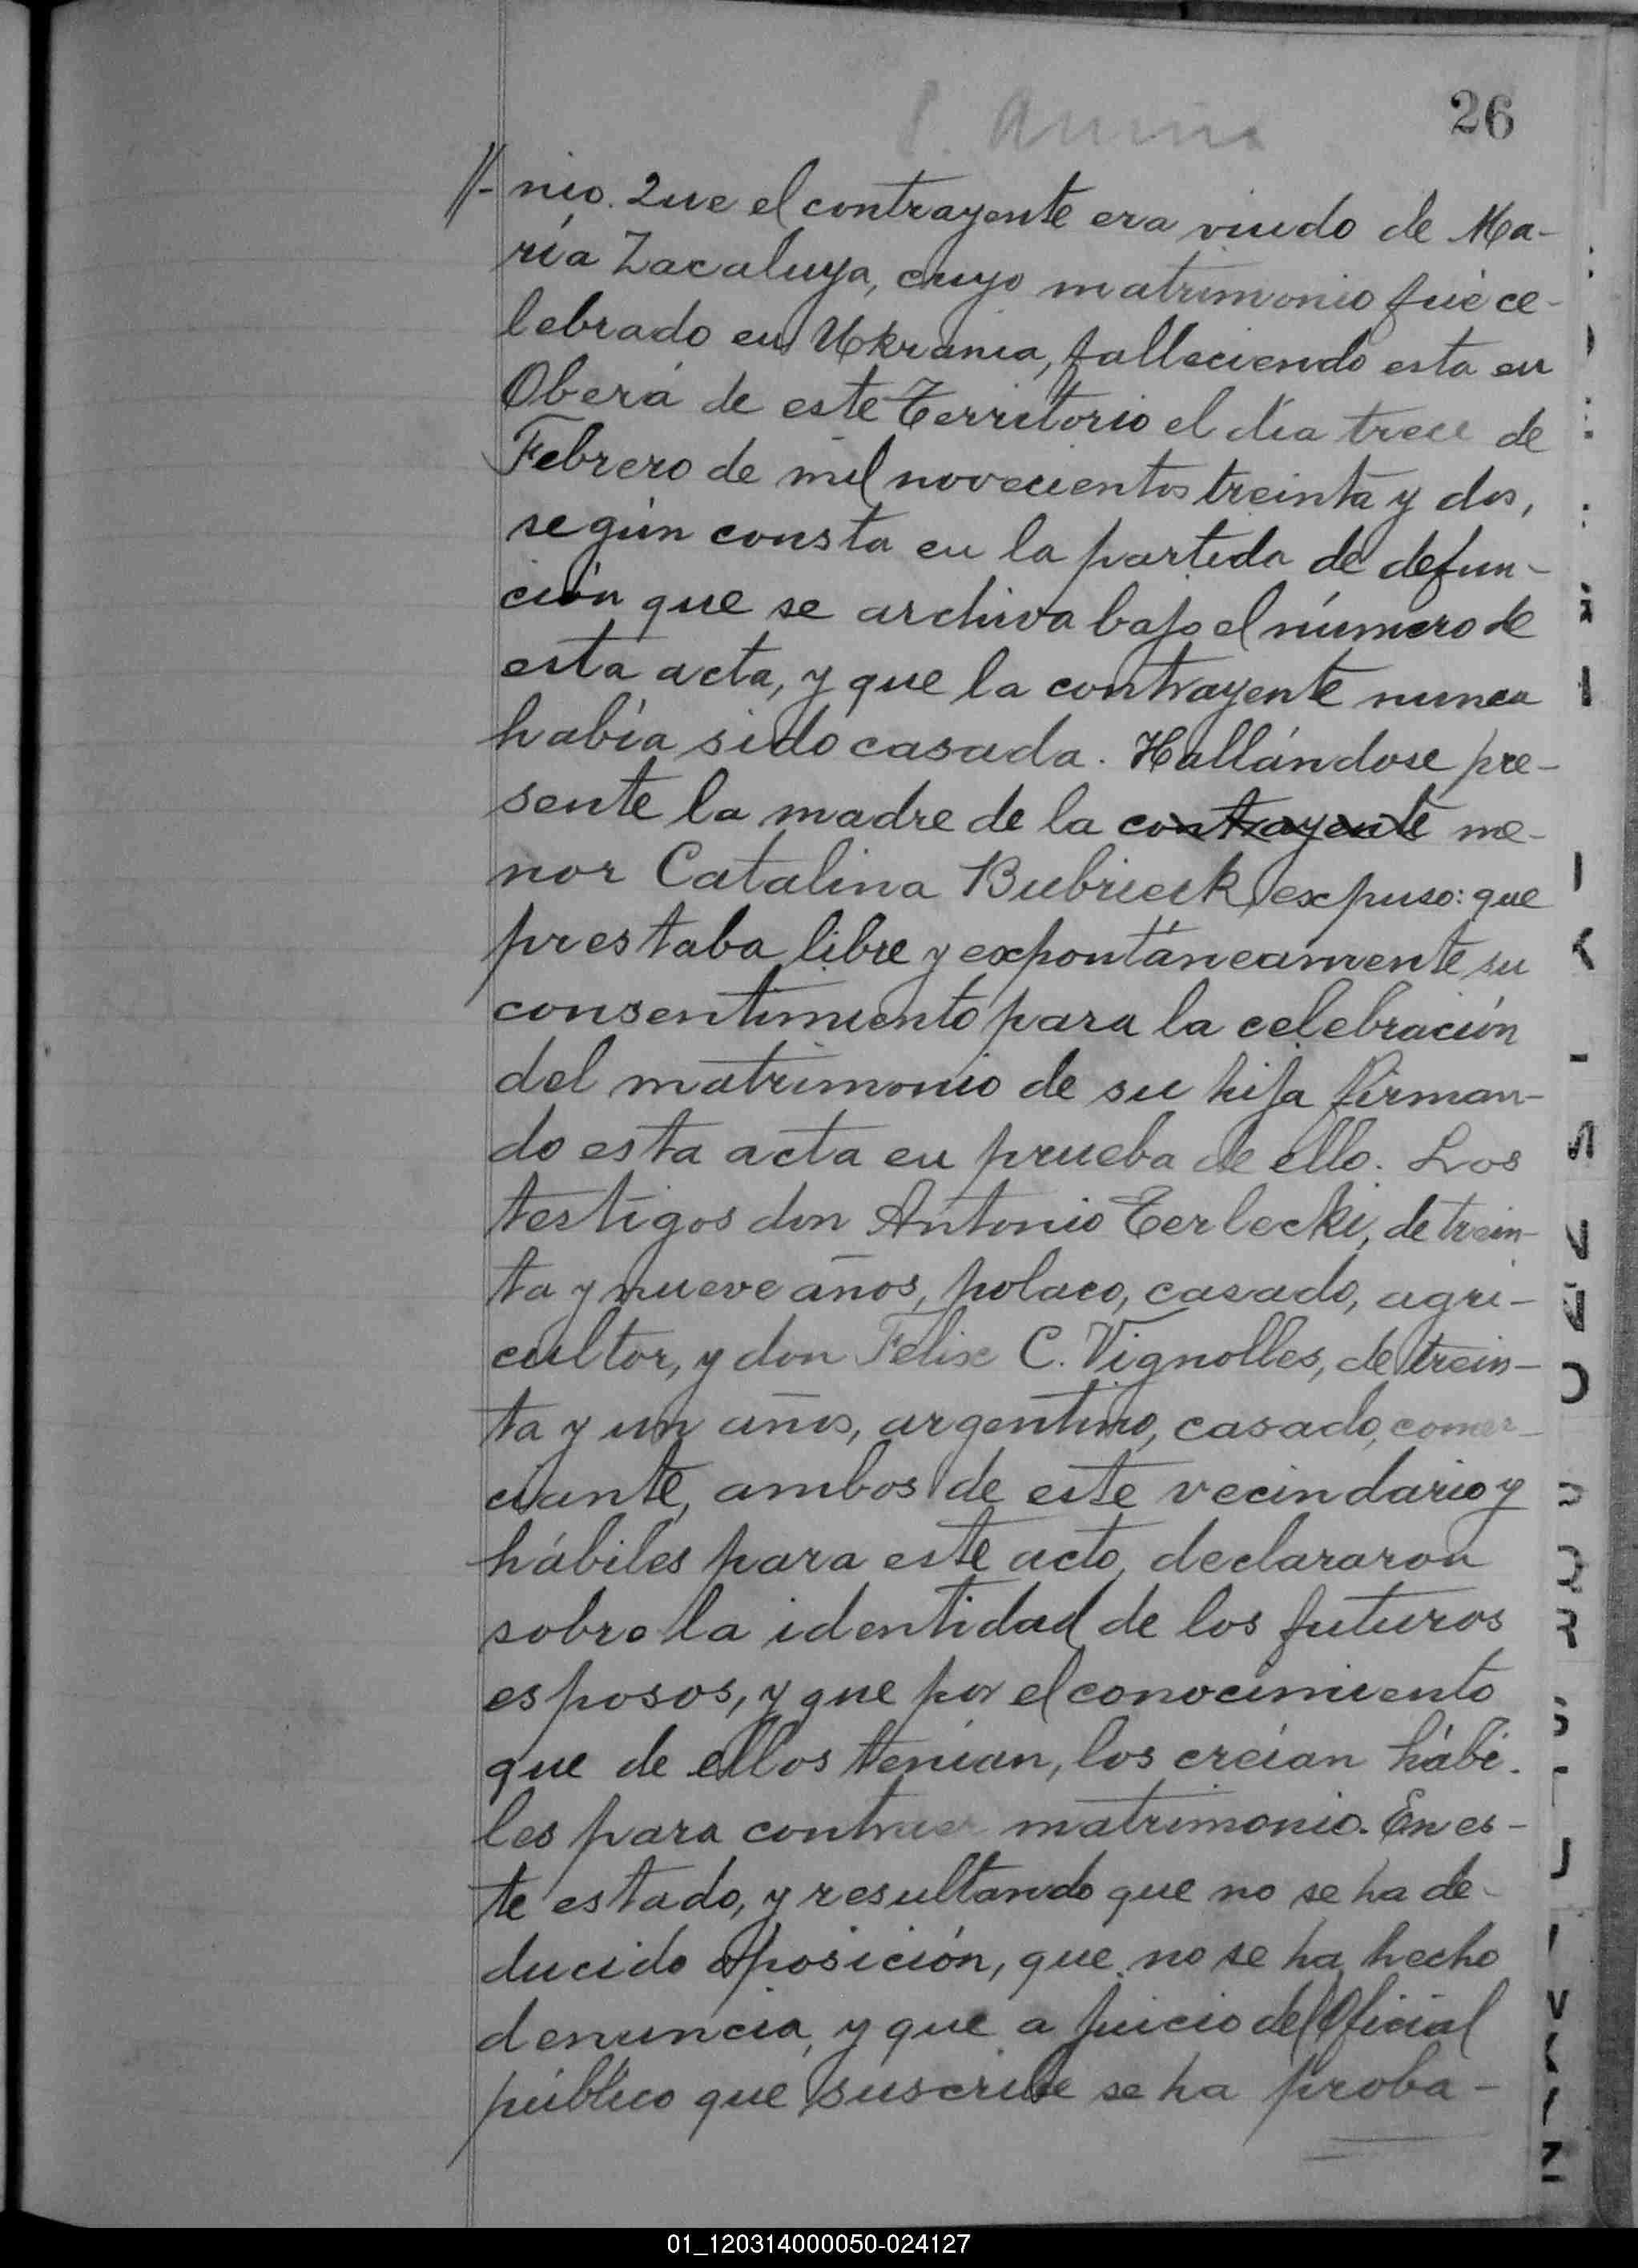 26
//- nio. Que el contrayente era viudo de Ma-
ría Zacaluya, cuyo matrimonio fué ce-
lebrado en Ukrania, falleciendo esta en
Oberá de este Territorio el día trece de
Febrero de mil novecientos treinta y dos,
según consta en la partida de defun-
ción que se archiva bajo el número de
esta acta, y que la contrayente nunca
había sido casada. Hallándose pre-
sente la madre de la contrayente me-
nor Catalina Bubrieck, expuso: que
prestaba libre y expontáneamente su
consentimiento para la celebración
del matrimonio de su hija firman-
do esta acta en prueba de ello. Los
testigos don Antonio Terlecki, de trein-
ta y nueve años, polaco, casado, agri-
cultor, y don Felix C. Vignolles, de trein-
ta y un años, argentino, casado, comer-
ciante, ambos de este vecindario y
hábiles para este acto, declararon
sobre la identidad de los futuros
esposos, y que por el conocimiento
que de ellos tenían, los creían hábi-
les para contraer matrimonio. En es-
te estado, y resultando que no se ha de-
ducido oposición, que no se ha hecho
denuncia, y que a juicio del Oficial
público que suscribe se ha proba-
01_120314000050-024127